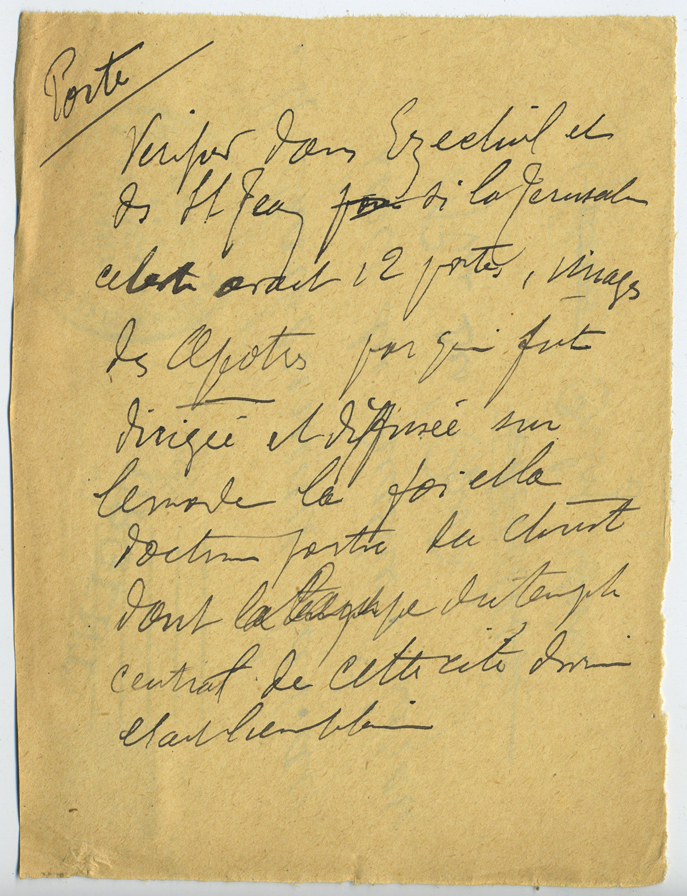 Porte
Verifier dans Ezechiel et
ds St Jean si la Jerusalem
celeste avait 12 portes, images
des Apotres par qui fut
dirigée et diffusée sur
le monde la foi et la
doctrine portée du Christ
dont la du temple
central de cette cité divine
etait l'embleme